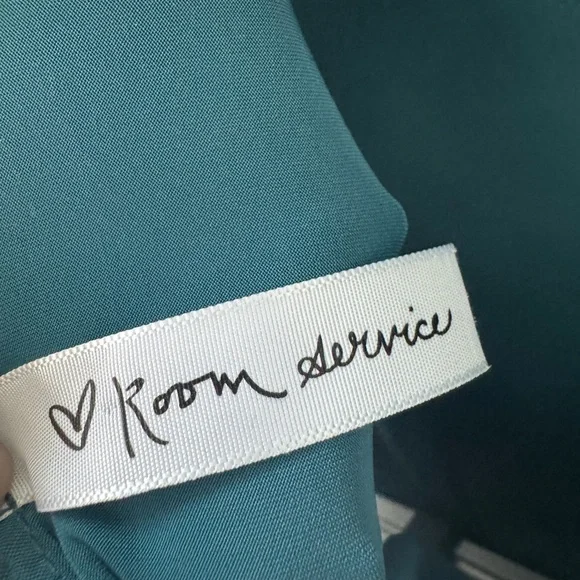 ♡ Room Service